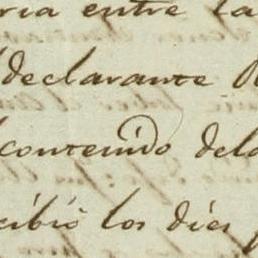 ria entre la
declarante
contenido dela
cibió los dies